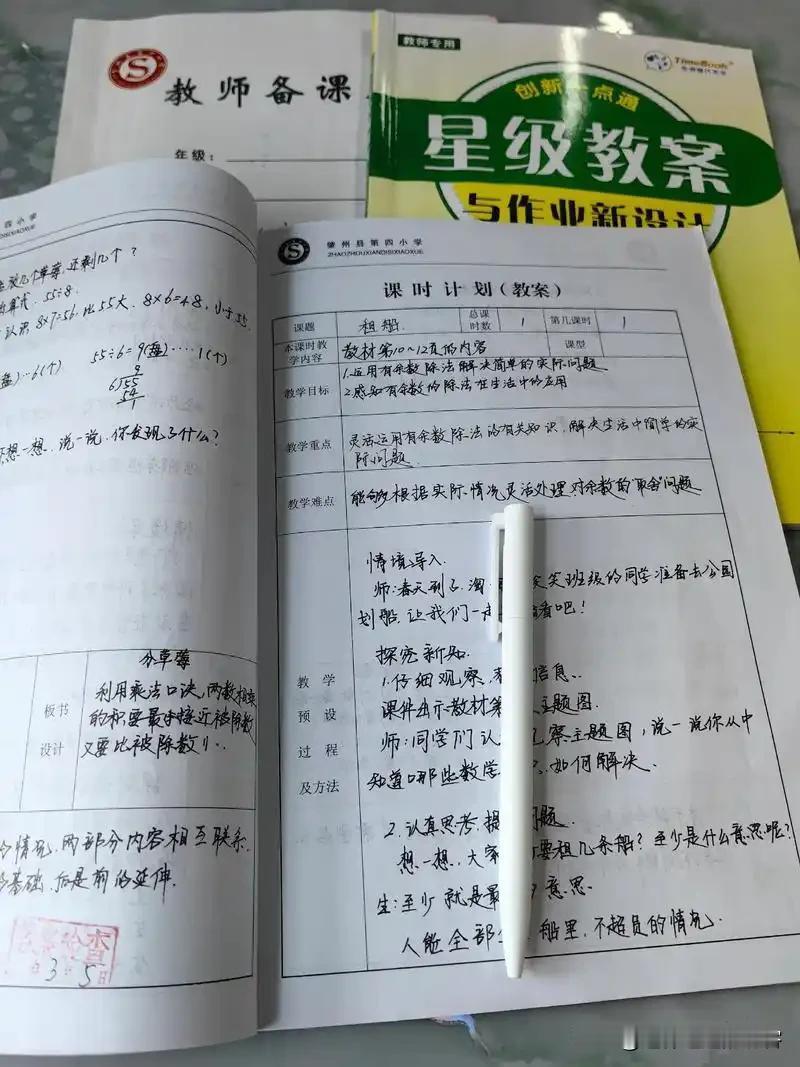 教师备课
年级：
教师专用
TimeBook
创新一点通
星级教案
与作业新设计
四小学
还剩几个？
55÷8
8×7=56，比55大，8×6=48，小于55.
…6(个) 55÷6=9(盘)……1(个)
9
6 55
54
1
想一想，说一说，你发现了什么？
分草莓
板书
设计
利用乘法口诀，两数相乘
的积要最接近被除数
又要比被除数小.
情况，两部分内容相互联系，
基础，后是前的延伸.
查
3 5日
肇州县第四小学
ZHAOZHOUXIANDISIXIAOXUE
课时计划（教案）
课题 租船. 总课时数 1 第几课时 1
本课时教学内容 教材第10~12页的内容 课型
教学目标 1.运用有余数除法解决简单的实际问题
2.感知有余数的除法在生活中的应用
教学重点 灵活运用有余数除法的有关知识，解决生活中简单的实
际问题.
教学难点 能够根据实际情况灵活处理对余数的"取舍"问题
教学
预设
过程
及方法
情境导入.
师：春天到了，淘 笑笑班级的同学准备去公园
划船，让我们一 看看吧！
探究新知.
1.仔细观察， 信息.
课件出示教材第 主题图.
师：同学们认 察主题图，说一说你从中
知道哪些数学 如何解决.
2.认真思考，提 问题.
想一想，大家 要租几条船？至少是什么意思呢？
生：至少就是最 意思.
人能全部 船里，不超员的情况.